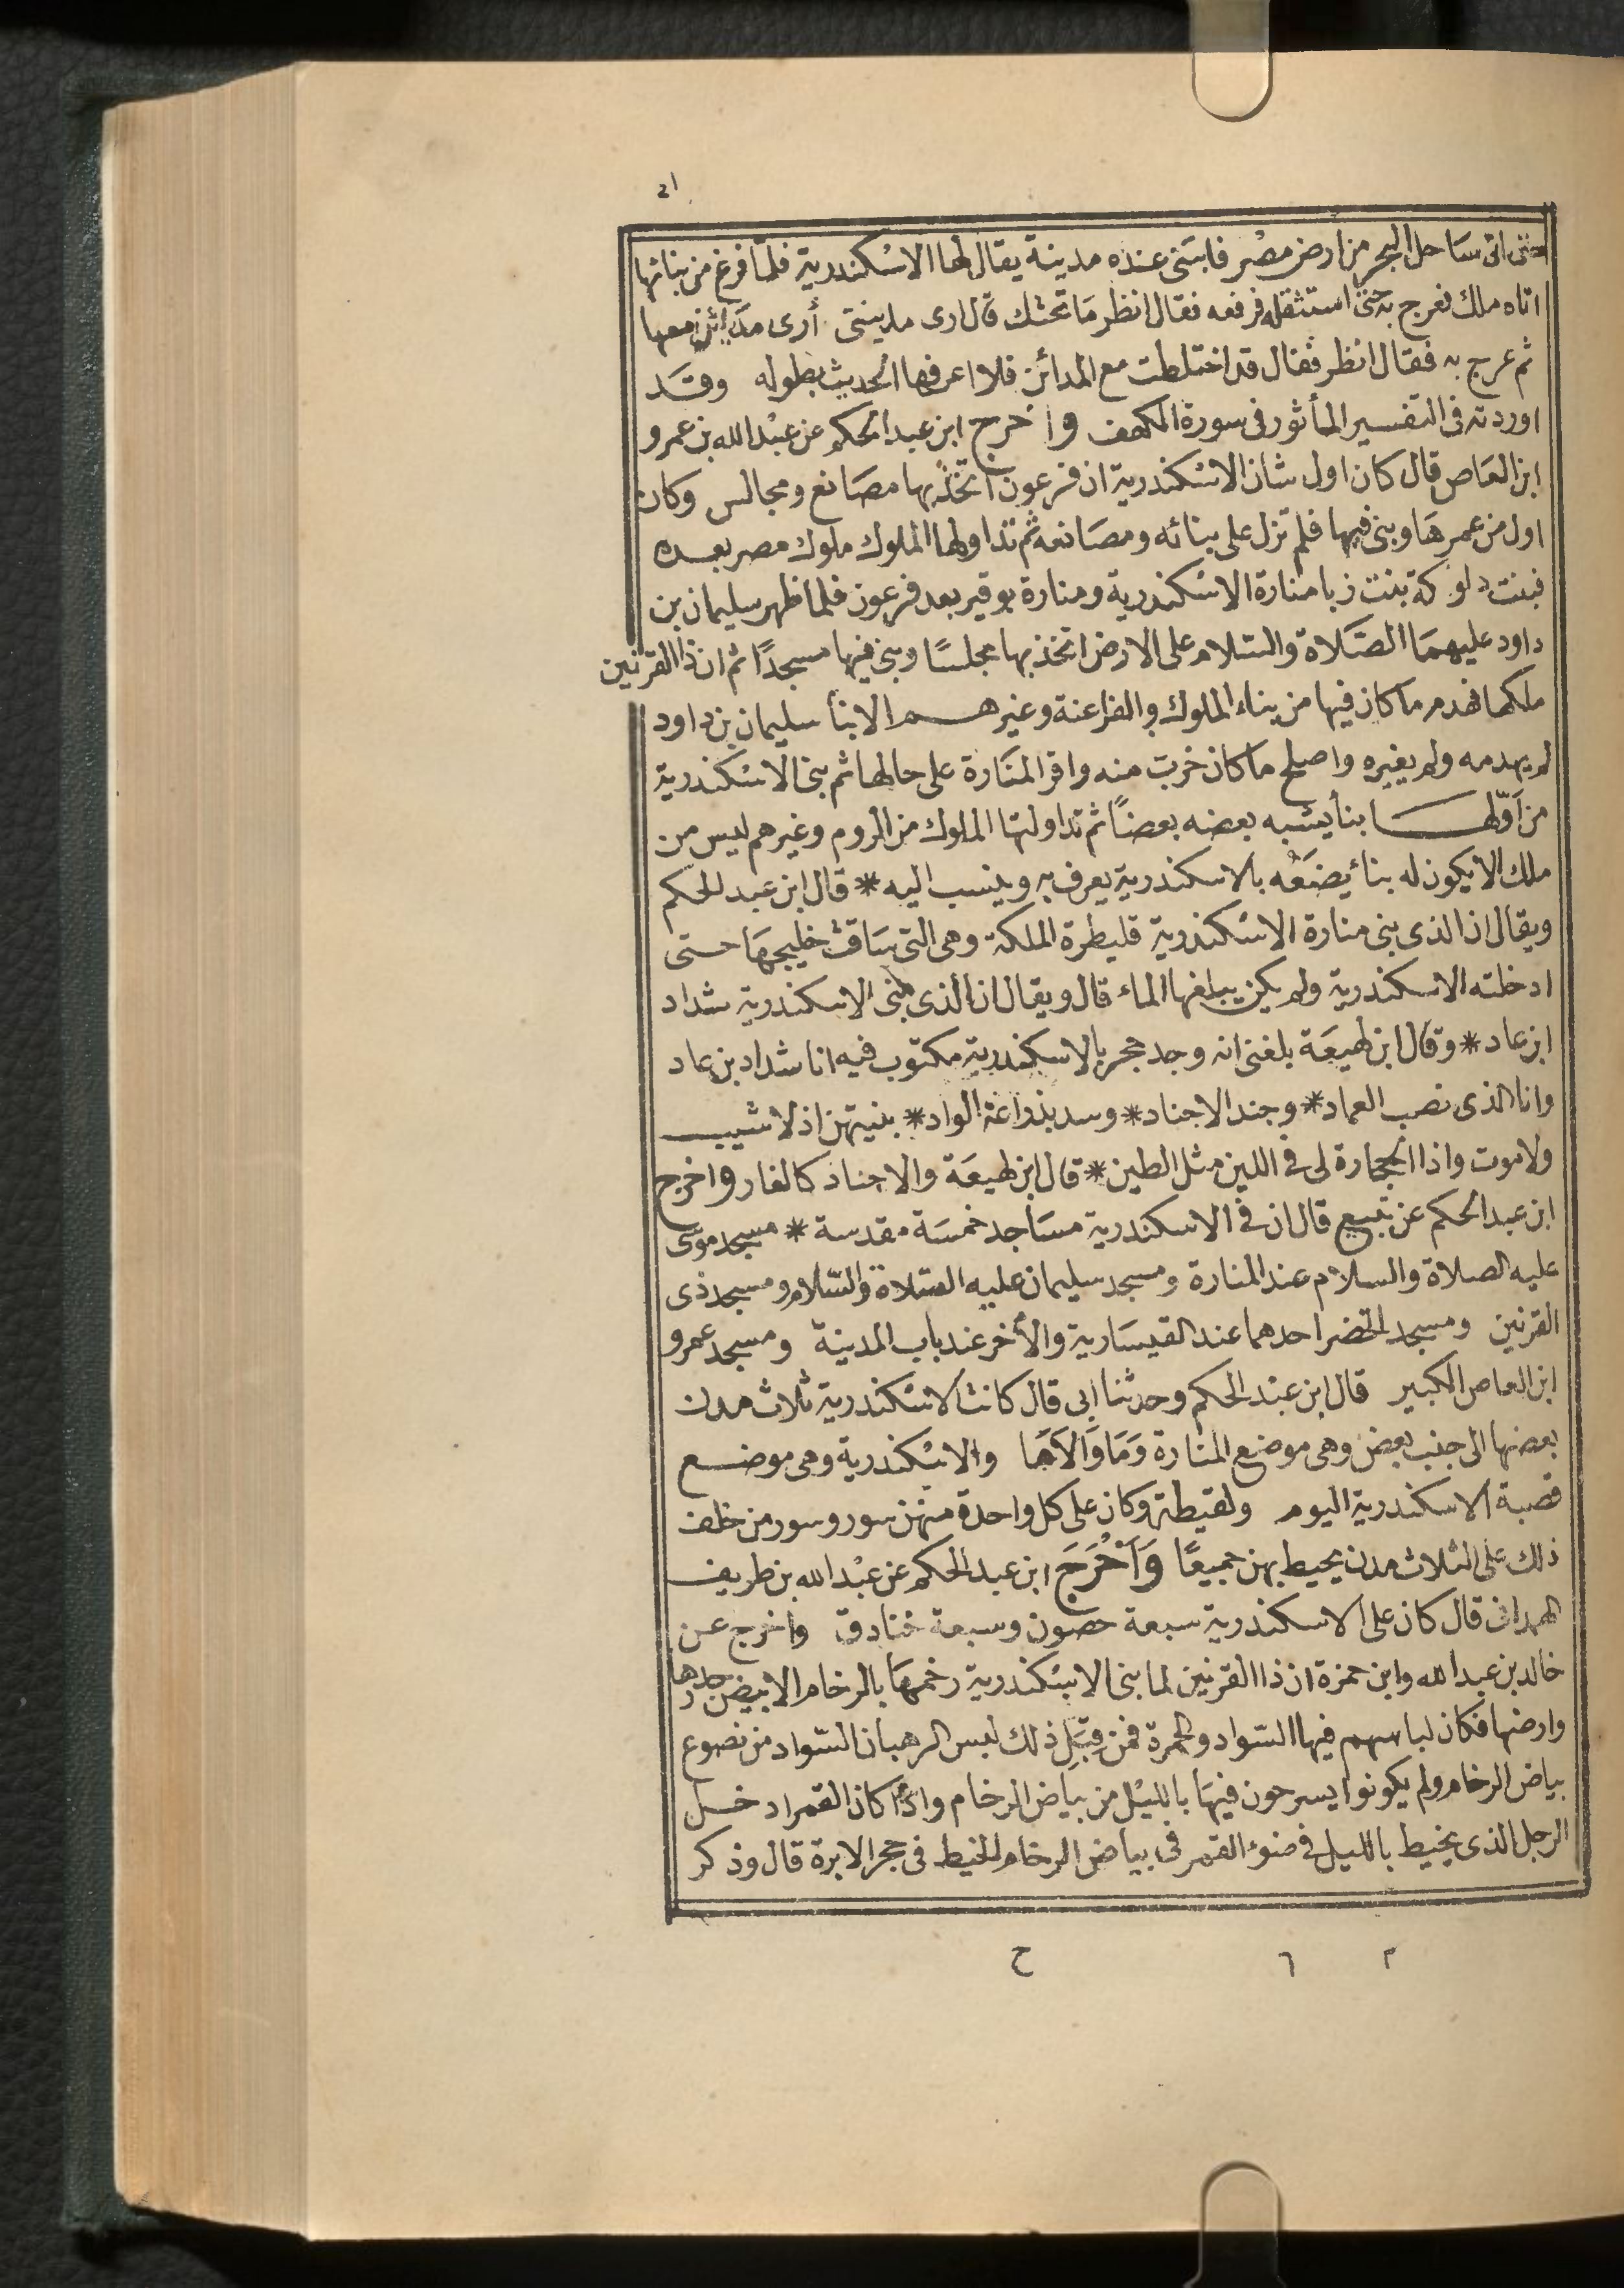 ٤١
حتى اتى ساحل البحر من ارض مصر فابتنى عنده مدينة يقال لها الاسكندرية فلما فرغ من بنائها
اتاه ملك فعرج به حتى استثقله فرفعه فقال انظر ما تحتك قال ارى مدينتى أرى مدائن معها
ثم عرج به فقال انظر فقال قد اختلطت مع المدائن فلا اعرفها الحديث بطوله وقد
اوردته فى التفسير المأثور فى سورة الكهف واخرج ابن عبد الحكم عن عبد الله بن عمرو
ابن العاص قال كان اول شان الاسكندرية ان فرعون اتخذ بها مصانع ومجالس وكان
اول من عمرها وبنى فيها فلم تزل على بنائه ومصانعه ثم تداولها الملوك ملوك مصر بعده
فبنت دلوكة بنت زبا منارة الاسكندرية ومنارة بوقير بعد فرعون فلما ظهر سليمان بن
داود عليهما الصلاة والسلام على الارض اتخذ بها مجلسًا وبنى فيها مسجدًا ثم ان ذا القرنين
ملكها فهدم ما كان فيها من بناء الملوك والفراعنة وغيرهم الا بنأ سليمان بن داود
لم يهدمه ولم يغيره واصلح ما كان خرب منه واقر المنارة على حالها ثم بنى الاسكندرية
من اوّلها بنأ يشبه بعضه بعضًا ثم تداولتها الملوك من الروم وغيرهم ليس من
ملك الا يكون له بنأ يضعه بالاسكندرية يعرف به وينسب اليه * قال ابن عبد الحكم
ويقال ان الذى بنى منارة الاسكندرية قليطرة الملكة وهى التى ساقت خليجها حتى
ادخلته الاسكندرية ولم يكن يبلغها الماء قال ويقال ان الذى بنى الاسكندرية شداد
ابن عاد * وقال ابن لهيعة بلغنى انه وجد حجر بالاسكندرية مكتوب فيه انا شداد بن عاد
وانا الذى نصب العماد * وجند الاجناد * وسد بذراعه الواد * بنيتهن اذ لا شيب
ولا موت واذا الحجارة لى فى اللين مثل الطين * قال ابن لهيعة والاجناد كالغار واخرج
ابن عبد الحكم عن تبيع قال ان فى الاسكندرية مساجد خمسة مقدسة * مسجد موسى
عليه الصلاة والسلام عند المنارة ومسجد سليمان عليه الصلاة والسلام ومسجد ذى
القرنين ومسجد الخضر احدهما عند القيسارية والأخر عند باب المدينة ومسجد عمرو
ابن العاص الكبير قال ابن عبد الحكم وحدثنا ابى قال كانت الاسكندرية ثلاث مدن
بعضها الى جنب بعض وهى موضع المنارة وَمَا وَالاَهَا والاسكندرية وهى موضع
قصبة الاسكندرية اليوم ولقيطة وكان على كل واحدة منهن سور وسور من خلف
ذلك على الثلاث مدن يحيط بهن جميعًا وَاَخْرَجَ ابن عبد الحكم عن عبد الله بن طريف
الهمدانى قال كان على الاسكندرية سبعة حصون وسبعة خنادق واخرج عن
خالد بن عبد الله وابن حمزة ان ذا القرنين لما بنى الاسكندرية رخمها بالرخام الابيض جدرها
وارضها فكان لباسهم فيها السواد والحمرة فمن قِبَلِ ذلك لبس الرهبان السواد من نصوع
بياض الرخام ولم يكونوا يسرحون فيها بالليل من بياض الرخام واذا كان القمر ادخل
الرجل الذى يخيط بالليل فى ضوء القمر فى بياض الرخام الخيط فى حجر الابرة قال وذكر
م ٦ ح